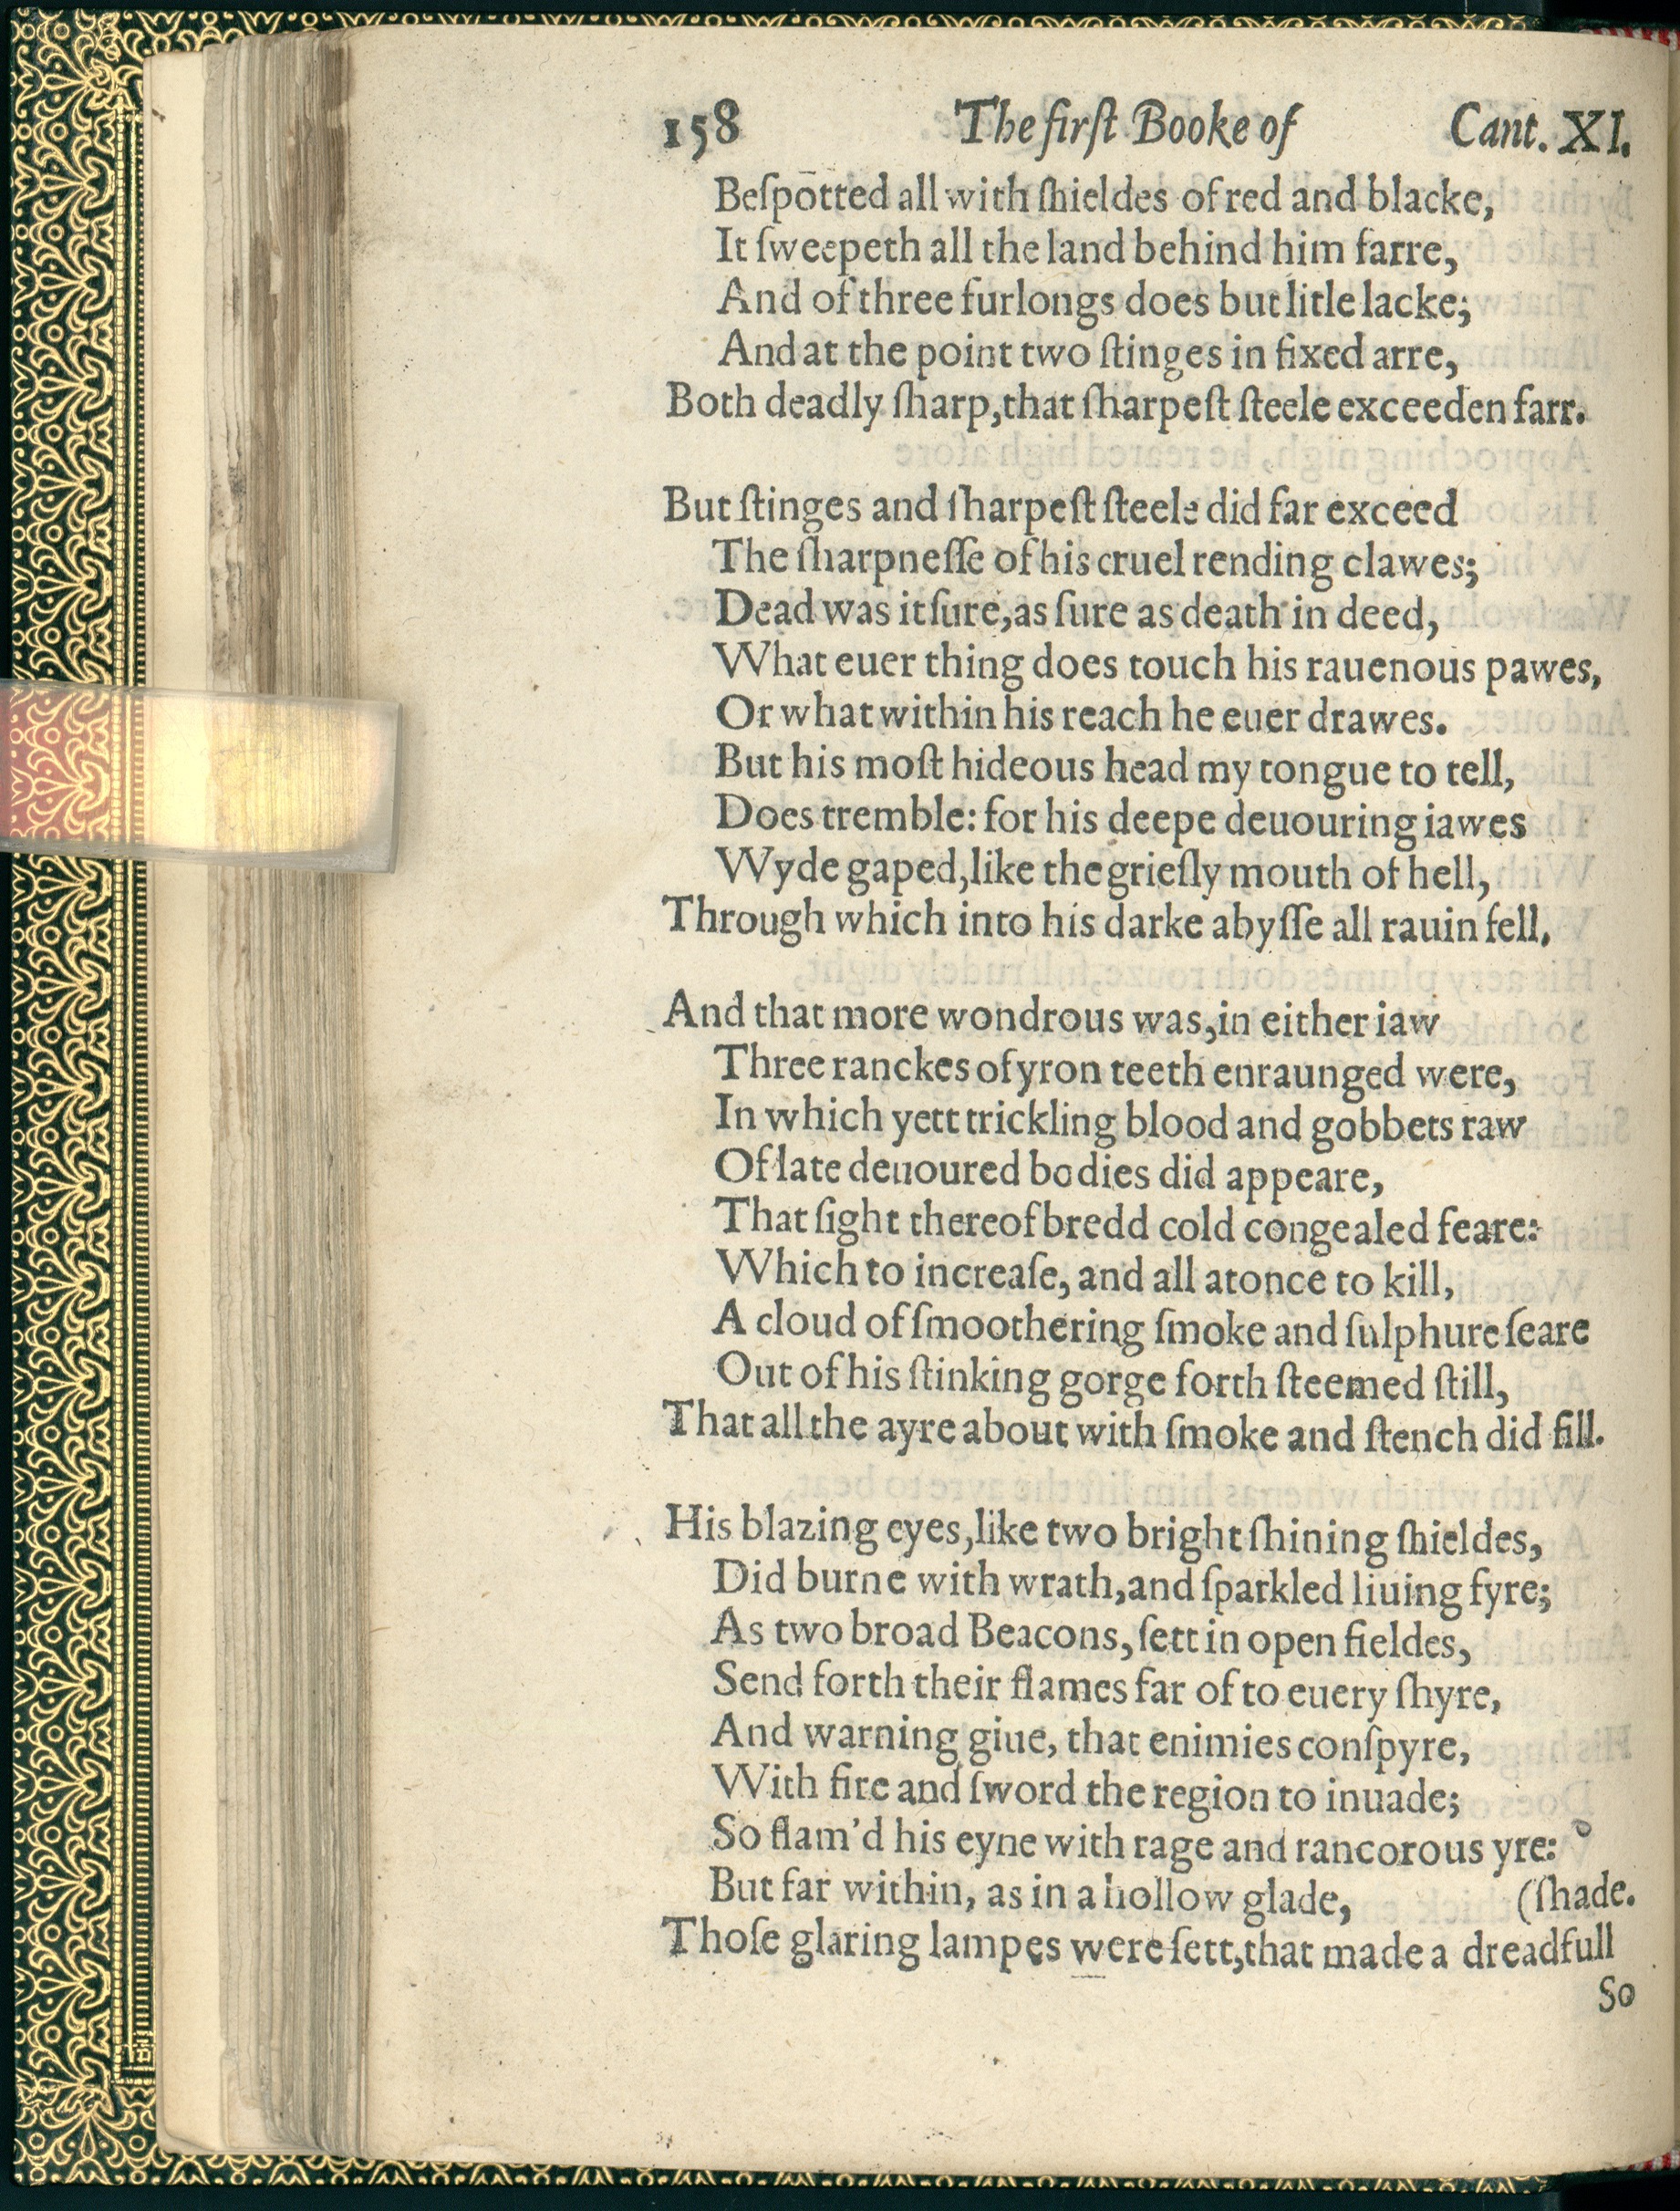 158 The firſt Booke of Cant. XI.
Beſpotted all with ſhieldes of red and blacke,
It ſweepeth all the land behind him farre,
And of three furlongs does but litle lacke;
And at the point two ſtinges in fixed arre,
Both deadly ſharp, that ſharpeſt ſteele exceeden farr.
But ſtinges and ſharpeſt ſteele did far exceed
The ſharpneſſe of his cruel rending clawes;
Dead was it ſure, as ſure as death in deed,
What euer thing does touch his rauenous pawes,
Or what within his reach he euer drawes.
But his moſt hideous head my tongue to tell,
Does tremble: for his deepe deuouring iawes
Wyde gaped, like the grieſly mouth of hell,
Through which into his darke abyſſe all rauin fell.
And that more wondrous was, in either iaw
Three ranckes of yron teeth enraunged were,
In which yett trickling blood and gobbets raw
Of late deuoured bodies did appeare,
That ſight thereof bredd cold congealed feare:
Which to increaſe, and all atonce to kill,
A cloud of ſmoothering ſmoke and ſulphure ſeare
Out of his ſtinking gorge forth ſteemed ſtill,
That all the ayre about with ſmoke and ſtench did fill.
His blazing eyes, like two bright ſhining ſhieldes,
Did burne with wrath, and ſparkled liuing fyre;
As two broad Beacons, ſett in open fieldes,
Send forth their flames far of to euery ſhyre,
And warning giue, that enimies conſpyre,
With fire and ſword the region to inuade;
So flam'd his eyne with rage and rancorous yre:
But far within, as in a hollow glade, (ſhade.
Thoſe glaring lampes were ſett, that made a dreadfull
So